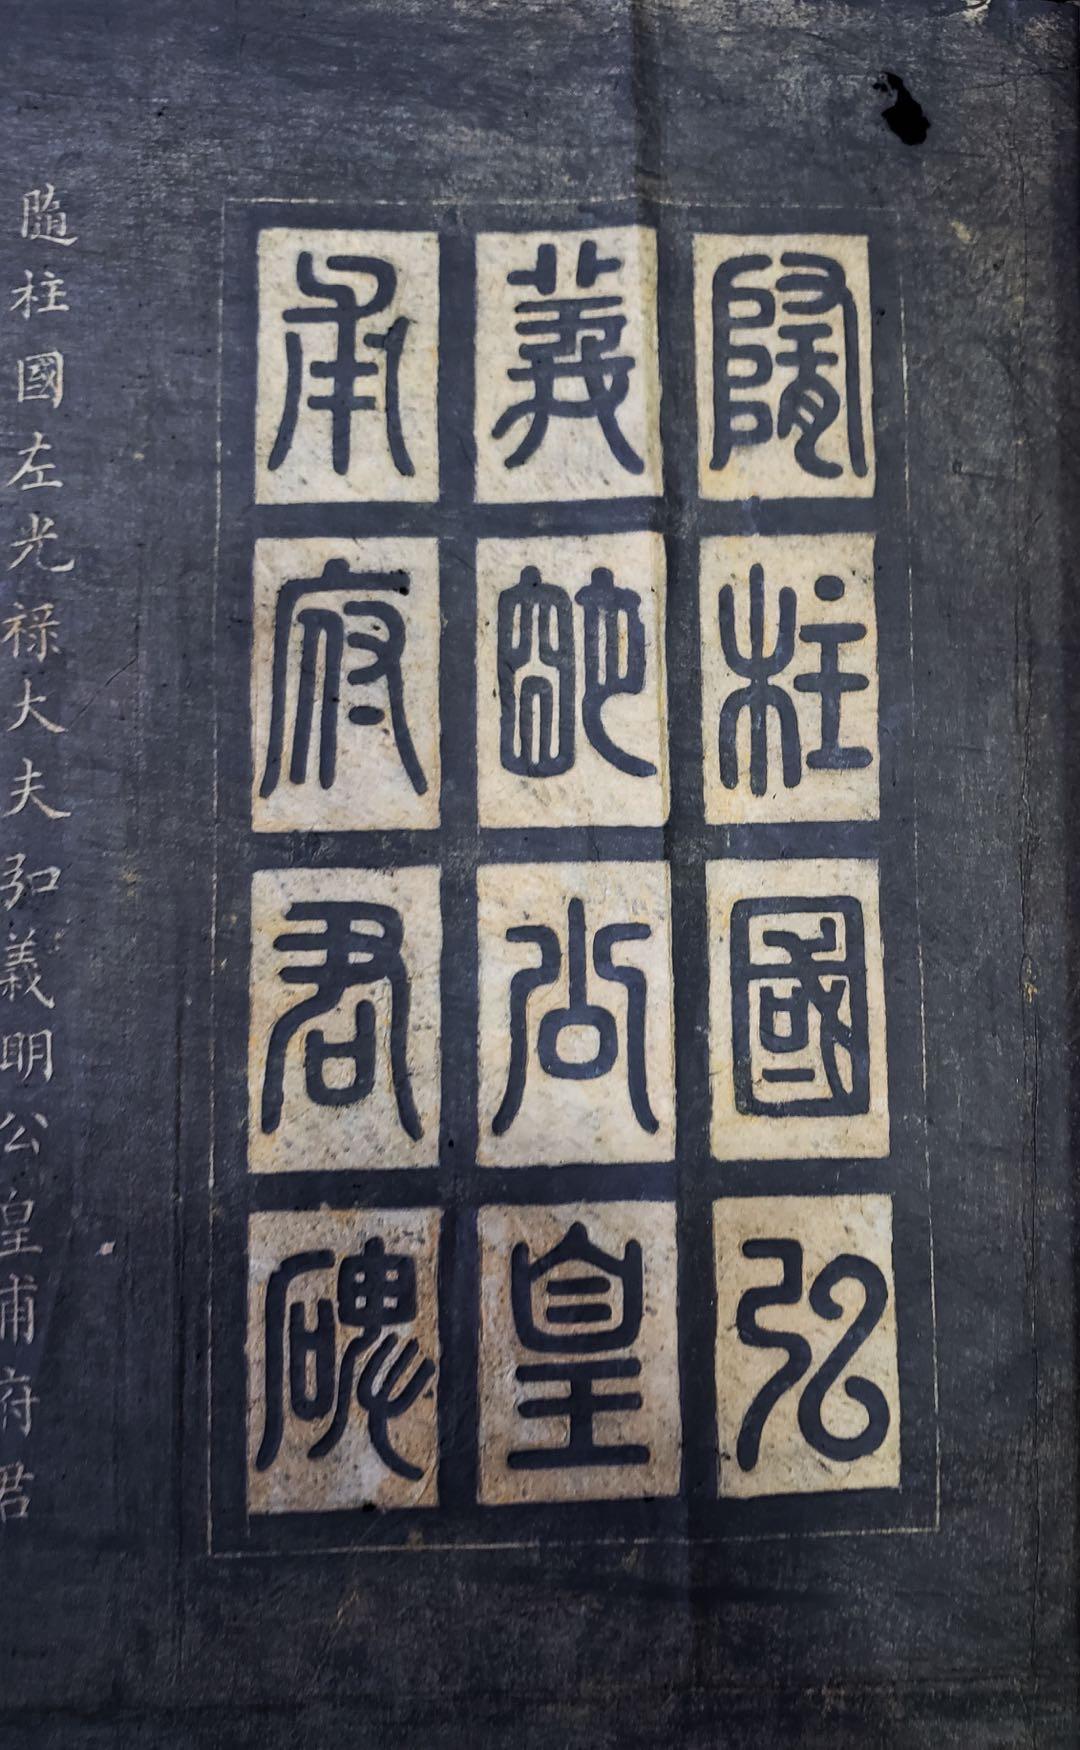 隋柱國弘
義明公皇
甫府君碑
隨柱國左光祿大夫弘義明公皇甫府君